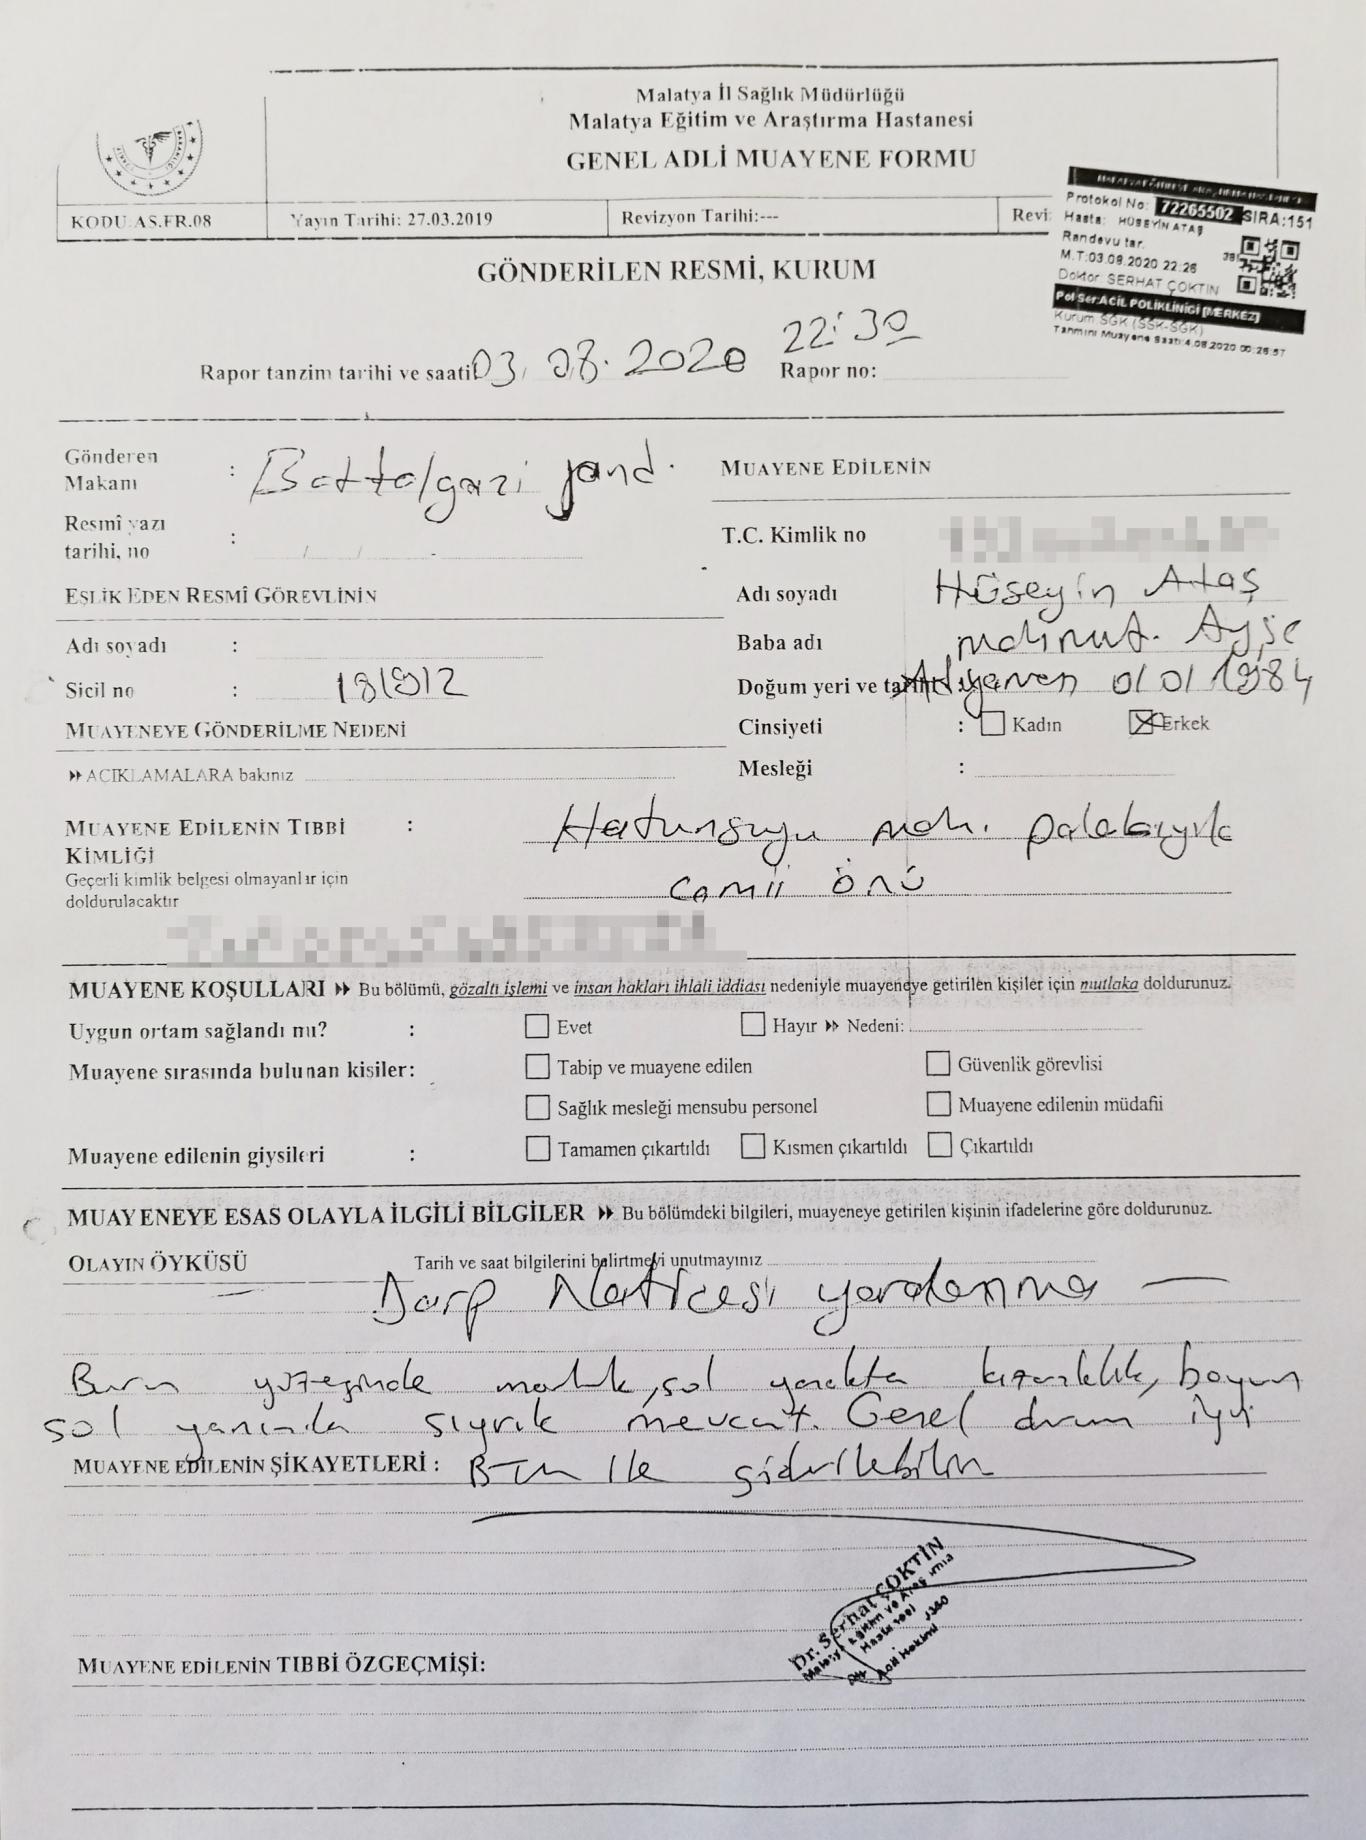 Malatya İl Sağlık Müdürlüğü
Malatya Eğitim ve Araştırma Hastanesi
GENEL ADLİ MUAYENE FORMU
KODU:AS.FR.08 Yayın Tarihi: 27.03.2019 Revizyon Tarihi:--- Revi
Protokol No: 72265502 SIRA:151
Hasta: HÜSEYİN ATAŞ
Randevu tar.
M.T:03.08.2020 22:26
Doktor SERHAT ÇOKTIN
Pol Ser:ACİL POLİKLİNİĞİ [MERKEZ]
Kurum SGK (SSK-SGK)
Tahmini Muayene Saati:4.08.2020 00:26:57
GÖNDERİLEN RESMİ, KURUM
Rapor tanzim tarihi ve saati 03.08.2020 22:30 Rapor no:
Gönderen Makamı : Battalgazi jand.
Resmî yazı tarihi, no : / / -
EŞLİK EDEN RESMİ GÖREVLİNİN
Adı soyadı :
Sicil no :
MUAYENEYE GÖNDERİLME NEDENİ
ACIKLAMALARA bakınız
MUAYENE EDİLENİN
T.C. Kimlik no
Adı soyadı Hüseyin Ataş
Baba adı Mahmut. Ayşe
Doğum yeri ve tarihi : Adıyaman 01 01 1984
Cinsiyeti : Kadın Erkek
Mesleği :
MUAYENE EDİLENİN TIBBİ KİMLİĞİ : Hatunsuyu mah.
camii önü
Geçerli kimlik belgesi olmayanlar için
doldurulacaktır
MUAYENE KOŞULLARI Bu bölümü, gözaltı işlemi ve insan hakları ihlali iddiası nedeniyle muayeneye getirilen kişiler için mutlaka doldurunuz.
Uygun ortam sağlandı mı? : Evet Hayır Nedeni:
Muayene sırasında bulunan kişiler: Tabip ve muayene edilen Güvenlik görevlisi
Sağlık mesleği mensubu personel Muayene edilenin müdafii
Muayene edilenin giysileri : Tamamen çıkartıldı Kısmen çıkartıldı Çıkartıldı
MUAYENEYE ESAS OLAYLA İLGİLİ BİLGİLER Bu bölümdeki bilgileri, muayeneye getirilen kişinin ifadelerine göre doldurunuz.
OLAYIN ÖYKÜSÜ Tarih ve saat bilgilerini belirtmeyi unutmayınız
Darp Neticesi yaralanma
Burun yüzeyinde morluk, sol yanakta kızarıklık, boyun
sol yanında sıyrık mevcut. Genel durum iyi
MUAYENE EDİLENİN ŞİKAYETLERİ : BTM ile giderilebilir
Dr. Serhat ÇOKTİN
Malatya Eğitim ve Araştırma
Hastanesi
Acil Hekimi
MUAYENE EDİLENİN TIBBİ ÖZGEÇMİŞİ: